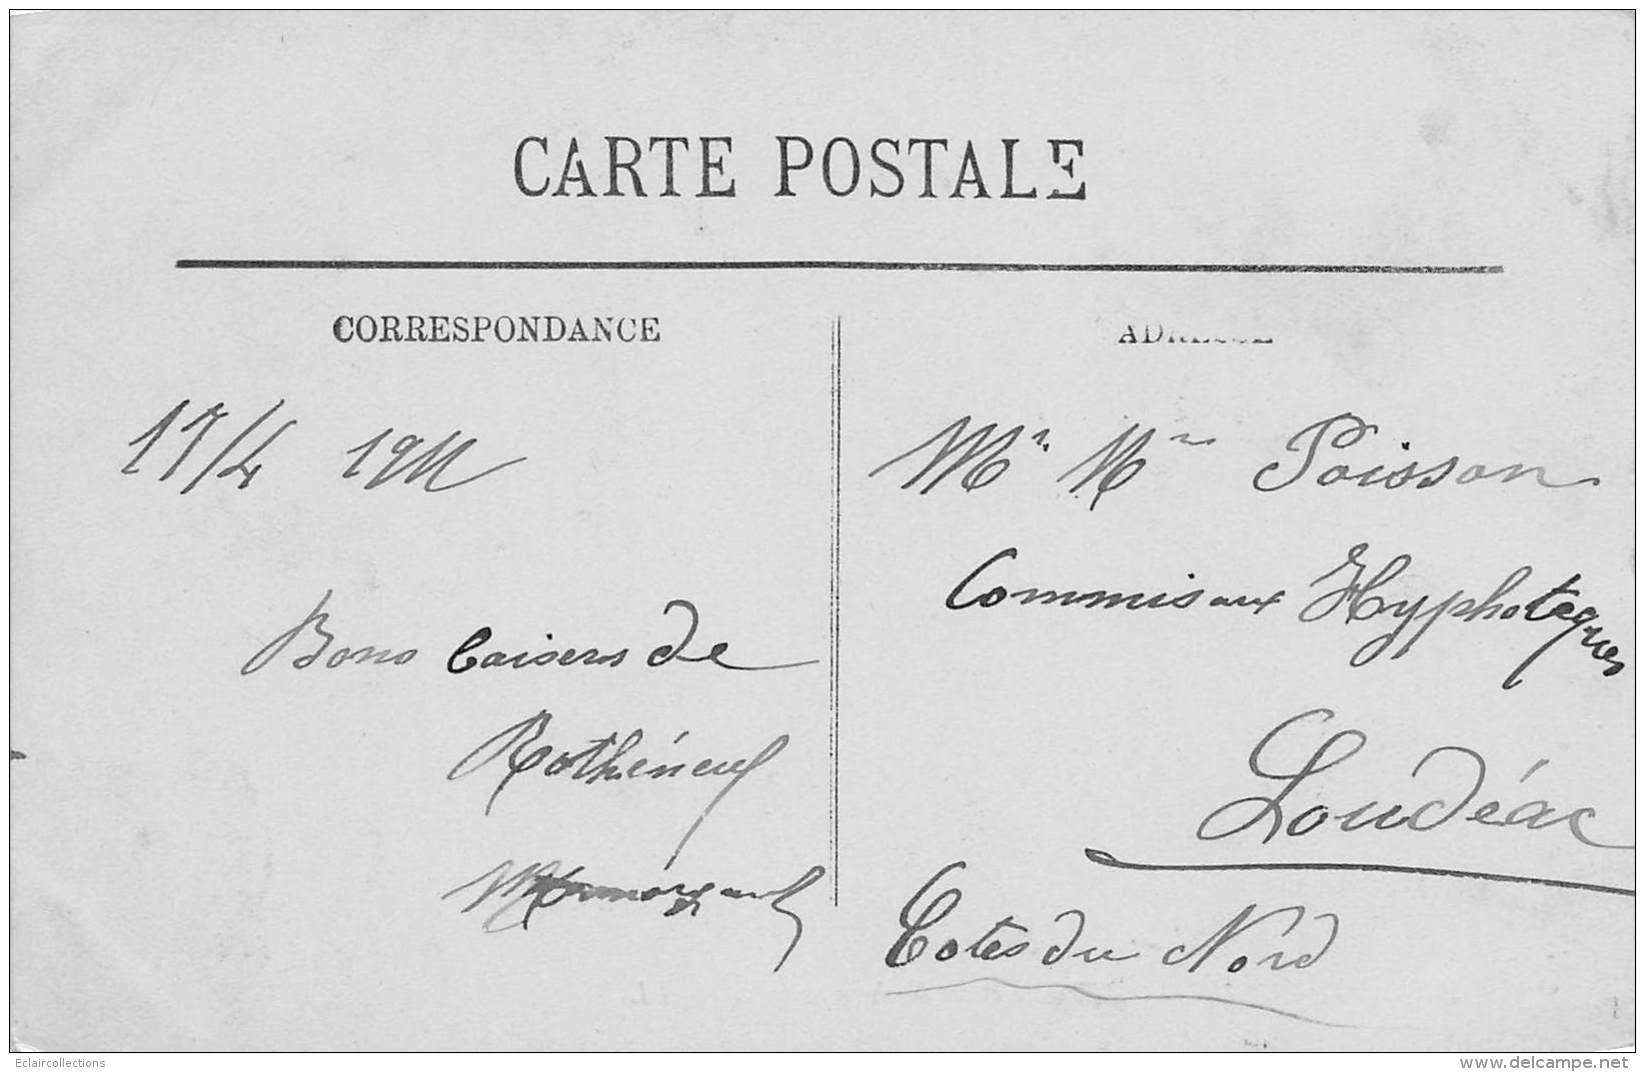 CARTE POSTALE
CORRESPONDANCE
17/4 1911
Bons baisers de
Rothéneuf
ADRESSE
Mr Mme Poisson
Commis aux Hyphotèques
Loudéac
Cotes du Nord
Eclaircollections
www.delcampe.net